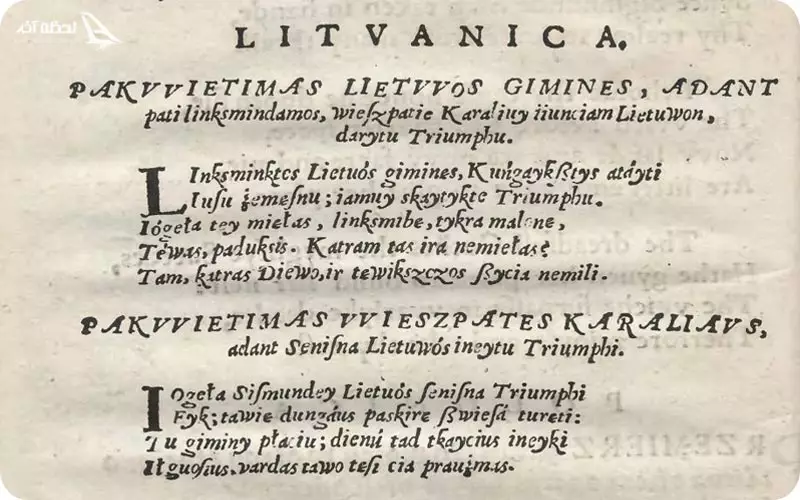 لحظه آخر
LITVANICA.
PAKVVIETIMAS LIETVVOS GIMINES, ADANT
pati linksmindamos, wieſzpatie Karaliuy iiunciam Lietuwon,
darytu Triumphu.
LInksminktes Lietuós gimines, Kuńgaykßtys atáyti
Iuſu żemeſnu; iamuy skaytykte Triumphu.
Iógeła tey miełas, linksmibe, tykra malone,
Tėwas, paduksis. Katram tas ira nemiełas?
Tam, katras Diewo, ir tewikszczos ßycia nemili.
PAKVVIETIMAS VVIESZPATES KARALIAVS,
adant Seniſna Lietuwós ineytu Triumphi.
IOgeła Siſmundey Lietuós ſeniſna Triumphi
Eyk; tawie dungáus paskire ßwieſá tureti:
Tu giminy płaciu; dienú tad tkaycius ineyki
Ilguoſius. vardas tawo teſi cia praużmas.